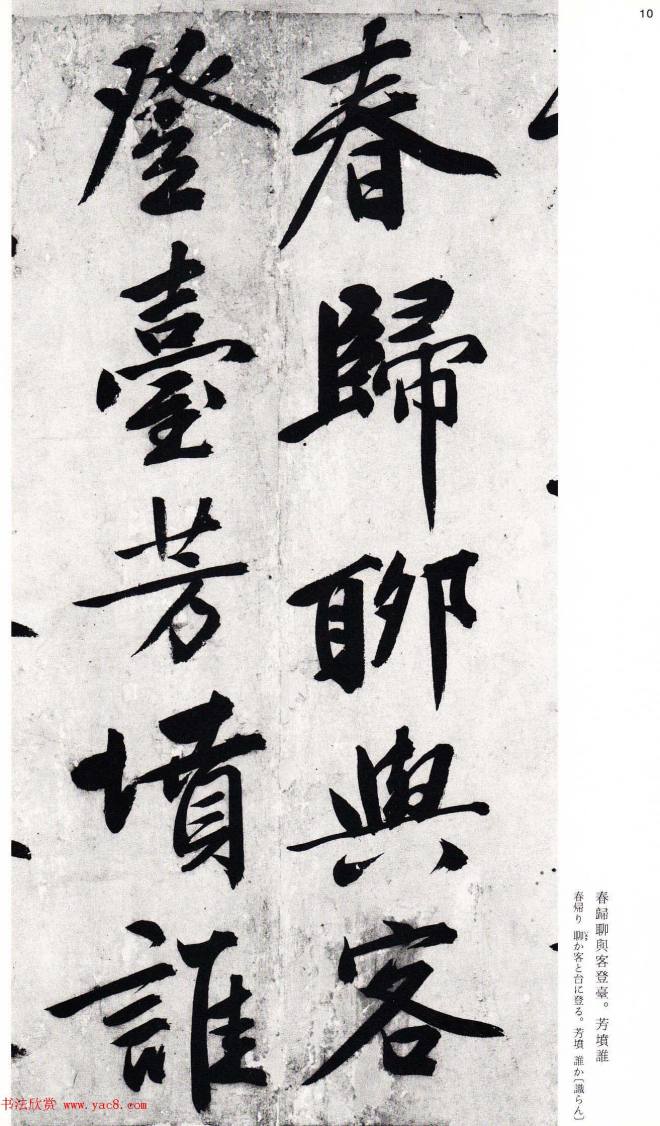 10
春歸聊與客
登臺芳墳誰
春歸聊與客登臺。芳墳誰
春帰り 聊か客と台に登る。芳墳 誰か〔識らん〕
书法欣赏 www.yac8.com